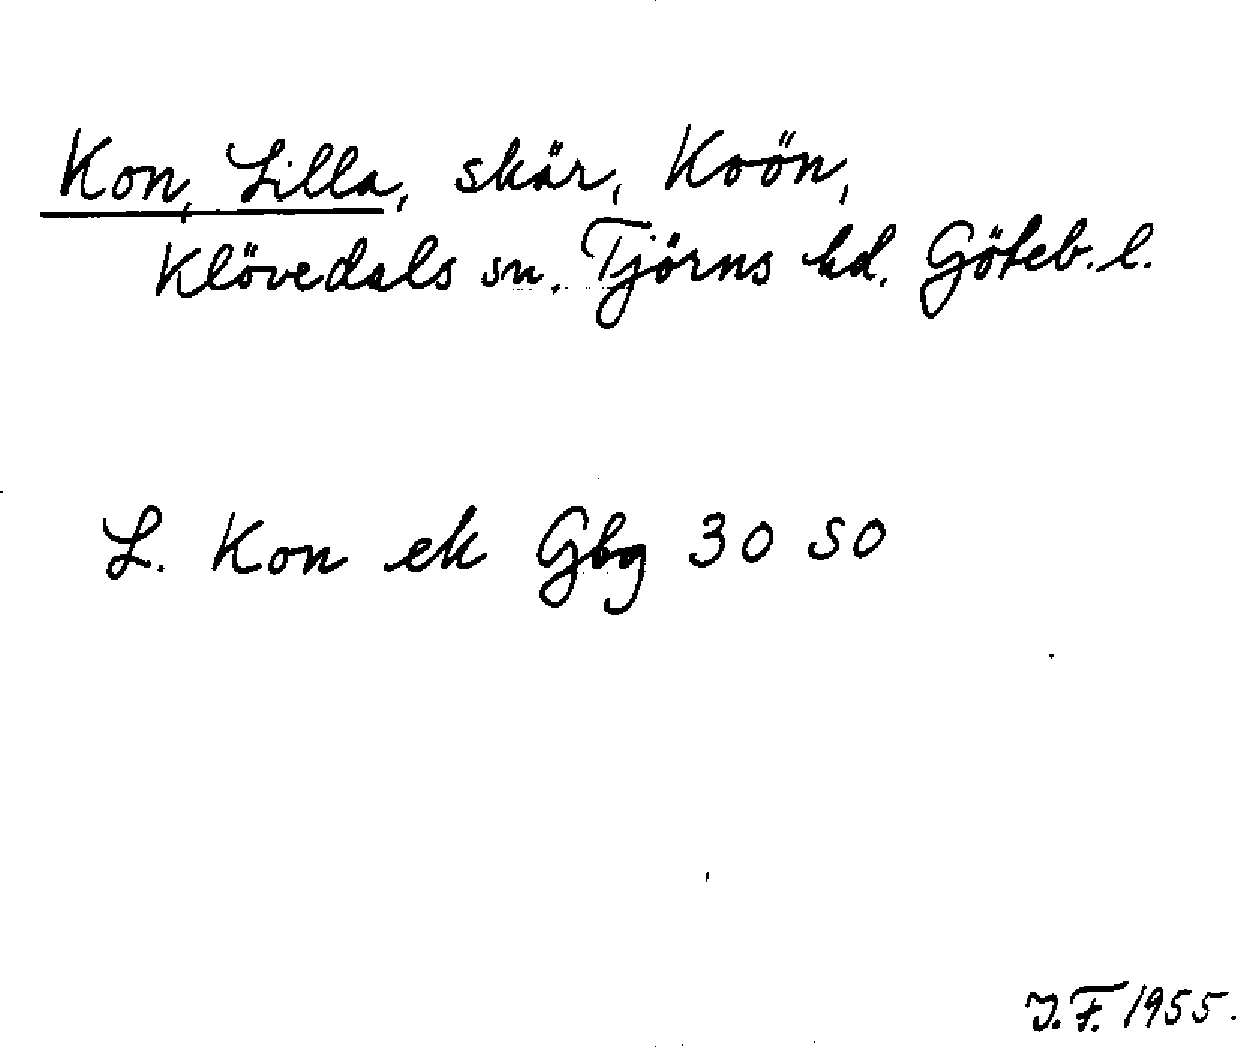 Kon, Lilla, skär, Koön,
Klövedals sn. Tjörns hd. Göteb. l.
L. Kon ek Gbg 30 SO
J.F. 1955.